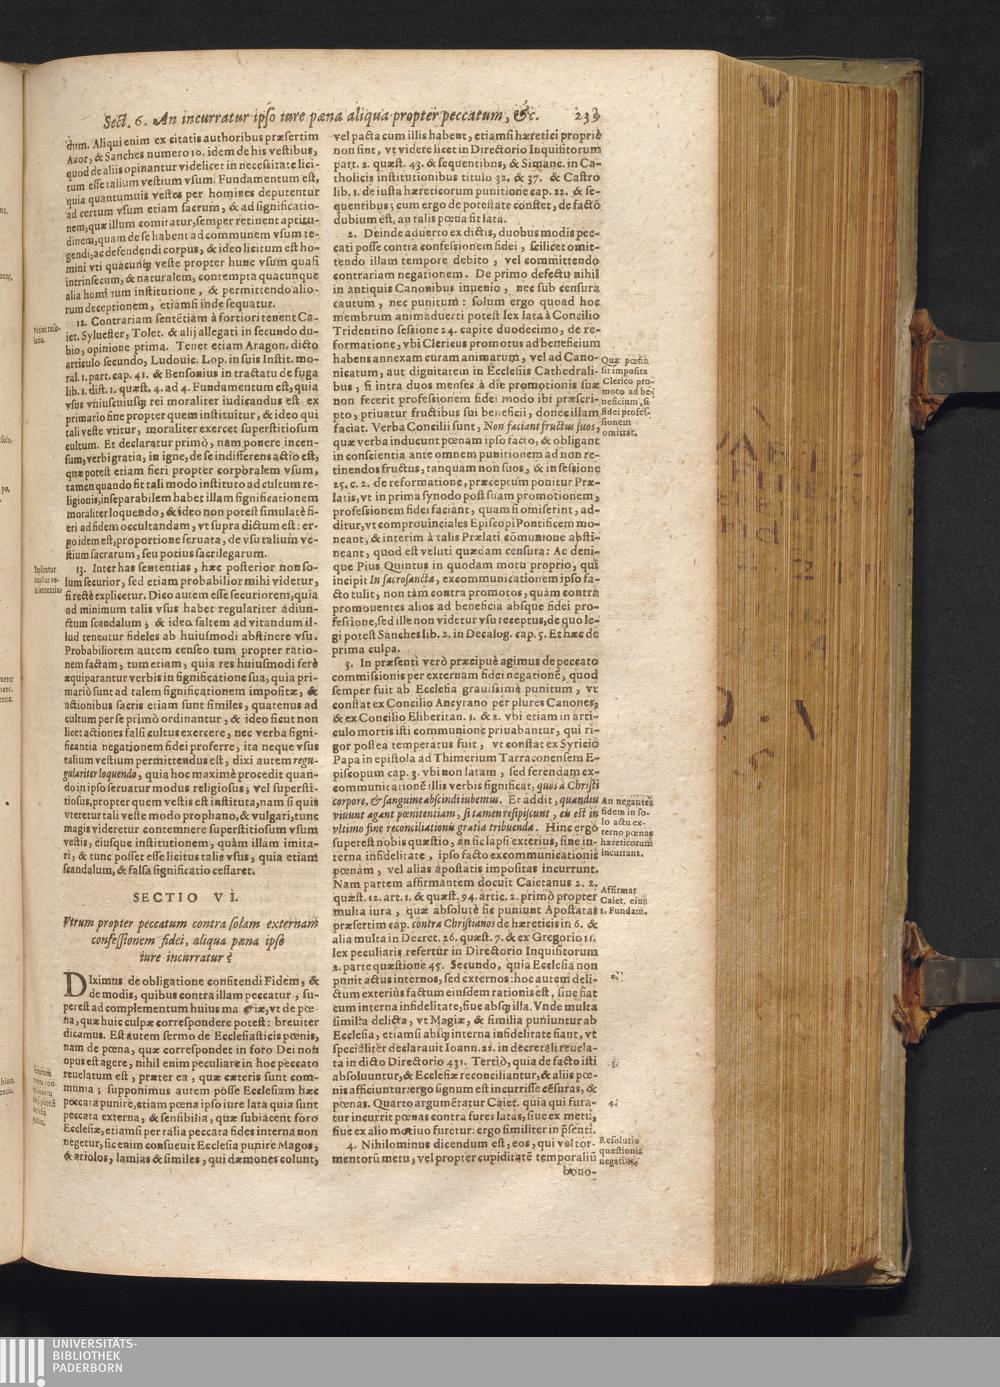 Sect. 6. An incurratur ipso iure pœna aliqua propter peccatum, &c. 239
dum. Aliqui enim ex citatis authoribus præsertim
Azor, & Sanches numero 10. idem de his vestibus,
quod de aliis opinantur videlicet in necessitate lici-
tum esse talium vestium vsum. Fundamentum est,
quia quantumuis vestes per homines deputentur
ad certum vsum etiam sacrum, & ad significatio-
nem, quæ illum comitatur, semper retinent aptitu-
dinem, quam de se habent ad communem vsum te-
gendi, ac defendendi corpus, & ideo licitum est ho-
mini vti quacunq; veste propter hunc vsum quasi
intrinsecum, & naturalem, contempta quacunque
alia hominum institutione, & permittendo alio-
rum deceptionem, etiamsi inde sequatur.
12. Contrariam sentētiam à fortiori tenent Ca-
iet. Syluester, Tolet. & alij allegati in secundo du-
bio, opinione prima. Tenet etiam Aragon. dicto
articulo secundo, Ludouic. Lop. in suis Instit. mo-
ral. 1. part. cap. 41. & Bensonius in tractatu de fuga
lib. 1. dist. 1. quæst. 4. ad 4. Fundamentum est, quia
vsus vniuscuiusq; rei moraliter iudicandus est ex
primario fine propter quem instituitur, & ideo qui
tali veste vtitur, moraliter exercet superstitiosum
cultum. Et declaratur primò, nam ponere incen-
sum, verbi gratia, in igne, de se indifferens actio est,
quæ potest etiam fieri propter corporalem vsum,
tamen quando fit tali modo instituto ad cultum re-
ligionis, inseparabilem habet illam significationem
moraliter loquendo, & ideo non potest simulatè fi-
eri ad fidem occultandam, vt supra dictum est: er-
go idem est, proportione seruata, de vsu talium ve-
stium sacrarum, seu potius sacrilegarum.
13. Inter has sententias, hæc posterior non so-
lum securior, sed etiam probabilior mihi videtur,
si rectè explicetur. Dico autem esse securiorem, quia
ad minimum talis vsus habet regulariter adiun-
ctum scandalum; & ideo saltem ad vitandum il-
lud tenentur fideles ab huiusmodi abstinere vsu.
Probabiliorem autem censeo tum propter ratio-
nem factam, tum etiam, quia res huiusmodi ferè
æquiparantur verbis in significatione sua, quia pri-
mariò sunt ad talem significationem impositæ, &
actionibus sacris etiam sunt similes, quatenus ad
cultum per se primò ordinantur, & ideo sicut non
licet actiones falsi cultus exercere, nec verba signi-
ficantia negationem fidei proferre, ita neque vsus
talium vestium permittendus est, dixi autem regu-
gulariter loquendo, quia hoc maximè procedit quan-
do in ipso seruatur modus religiosus; vel supersti-
tiosus, propter quem vestis est instituta, nam si quis
vteretur tali veste modo prophano, & vulgari, tunc
magis videretur contemnere superstitiosum vsum
vestis, eiusque institutionem, quàm illam imita-
ri, & tunc posset esse licitus talis vsus, quia etiam
scandalum, & falsa significatio cessaret.
SECTIO VI.
Vtrum propter peccatum contra solam externam
confessionem fidei, aliqua pœna ipso
iure incurratur?
DIximus de obligatione confitendi Fidem, &
de modis, quibus contra illam peccatur, su-
perest ad complementum huius materiæ, vt de pœ-
na, quæ huic culpæ correspondere potest: breuiter
dicamus. Est autem sermo de Ecclesiasticis pœnis,
nam de pœna, quæ correspondet in foro Dei non
opus est agere, nihil enim peculiare in hoc peccato
reuelatum est, præter ea, quæ cæteris sunt com-
munia; supponimus autem posse Ecclesiam hæc
peccata punire, etiam pœna ipso iure lata quia sunt
peccata externa, & sensibilia, quæ subiacent foro
Ecclesiæ, etiamsi per talia peccata fides interna non
negetur, sic enim consueuit Ecclesia punire Magos,
& ariolos, lamias & similes, qui dæmones colunt,
vel pacta cum illis habent, etiamsi hæretici propriè
non sint, vt videre licet in Directorio Inquisitorum
part. 2. quæst. 43. & sequentibns, & Simanc. in Ca-
tholicis institutionibus titulo 32. & 37. & Castro
lib. 1. de iusta hæreticorum punitione cap. 22. & se-
quentibus; cum ergo de potestate constet, de factò
dubium est, an talis pœna sit lata.
2. Deinde aduerto ex dictis, duobus modis pec-
cati posse contra confessionem fidei, scilicet omit-
tendo illam tempore debito, vel committendo
contrariam negationem. De primo defectu nihil
in antiquis Canonibus inuenio, nec sub censura
cautum, nec punitum: solum ergo quoad hoc
membrum animaduerti potest lex lata à Concilio
Tridentino sessione 24. capite duodecimo, de re-
formatione, vbi Clericus promotus ad beneficium
habens annexam curam animarum, vel ad Cano-
nicatum, aut dignitatem in Ecclesiis Cathedrali-
bus, si intra duos menses à die promotionis suæ
non fecerit professionem fidei modo ibi præscri-
pto, priuatur fructibus sui beneficii, donec illam
faciat. Verba Concilii sunt, Non faciant fructus suos,
quæ verba inducunt pœnam ipso facto, & obligant
in conscientia ante omnem punitionem ad non re-
tinendos fructus, tanquam non suos, & in sessione
25. c. 2. de reformatione, præceptum ponitur Præ-
latis, vt in prima synodo post suam promotionem,
professionem fidei faciant, quam si omiserint, ad-
ditur, vt comprouinciales Episcopi Pontificem mo-
neant, & interim à talis Prælati cōmunione absti-
neant, quod est veluti quædam censura: Ac deni-
que Pius Quintus in quodam motu proprio, qui
incipit In sacrosancta, excommunicationem ipso fa-
cto tulit, non tàm contra promotos, quàm contra
promouentes alios ad beneficia absque fidei pro-
fessione, sed ille non videtur vsu receptus, de quo le-
gi potest Sanches lib. 2. in Decalog. cap. 5. Et hæc de
prima culpa.
3. In præsenti verò præcipuè agimus de peccato
commissionis per externam fidei negationē, quod
semper fuit ab Ecclesia grauissimè punitum, vt
constat ex Concilio Ancyrano per plures Canones,
& ex Concilio Eliberitan. 1. & 2. vbi etiam in arti-
culo mortis isti communione priuabantur, qui ri-
gor postea temperatus fuit, vt constat ex Syricio
Papa in epistola ad Thimerium Tarraconensem E-
piscopum cap. 3. vbi non latam, sed ferendam ex-
communicationē illis verbis significat, quos à Christi
corpore, & sanguine abscindi iubemus. Et addit, quandiu
viuunt agant pœnitentiam, si tamen resipiscunt, eis est in
vltimo fine reconciliationis gratia tribuenda. Hinc ergo
superest nobis quæstio, an sic lapsi exterius, sine in-
terna infidelitate, ipso facto excommunicationis
pœnam, vel alias apostatis impositas incurrunt.
Nam partem affirmantem docuit Caietanus 2. 2.
quæst. 12. art. 1. & quæst. 94. artic. 2. primò propter
multa iura, quæ absolutè sic puniunt Apostatas
præsertim cap. contra Christianos de hæreticis in 6. &
alia multa in Decret. 26. quæst. 7. & ex Gregorio 11.
lex peculiaris refertur in Directorio Inquisitorum
2. parte quæstione 45. Secundo, quia Ecclesia non
punit actus internos, sed externos: hoc autem deli-
ctum exteriùs factum eiusdem rationis est, siue fiat
cum interna infidelitate, siue absq; illa. Vnde multa
similia delicta, vt Magiæ, & similia puniuntur ab
Ecclesia, etiamsi absq; interna infidelitate fiant, vt
specialiter declarauit Ioann. 22. in decretali reuela-
ta in dicto Directorio 431. Tertiò, quia de facto isti
absoluuntur, & Ecclesiæ reconciliantur, & aliis pœ-
nis afficiuntur: ergo signum est incurrisse cēsuras, &
pœnas. Quarto argumētatur Caiet. quia qui fura-
tur incurrit pœnas contra fures latas, siue ex metu,
siue ex alio motiuo furetur: ergo similiter in p̄senti.
4. Nihilominus dicendum est, eos, qui vel tor-
mentorū metu, vel propter cupiditatē temporaliū
bono-
Quæ pœna
sit imposita
Clerico pro-
moto ad be-
neficium, si
fidei profes-
sionem
omittat.
An negantes
fidem in so-
lo actu ex-
terno pœnas
hæreticorum
incurrant.
Affirmat
Caiet. eius
1. Fundam.
2.
3.
4.
Resolutio
quæstionis
negatiua.
UNIVERSITÄTS-
BIBLIOTHEK
PADERBORN